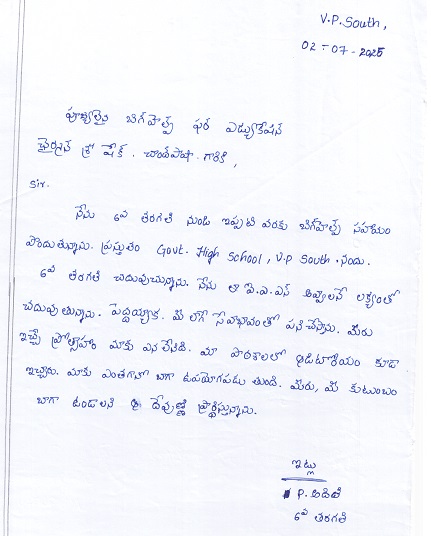 V.P. South,
02-07-2025
పూజ్యులైన బిగ్‌హెల్ప్ ఫర్ ఎడ్యుకేషన్
ఛైర్మన్ శ్రీ షేక్. చాంద్‌పాషా. గారికి,
Sir.
నేను 6వ తరగతి నుండి ఇప్పటి వరకు బిగ్‌హెల్ప్ సహాయం
పొందుతున్నాను. ప్రస్తుతం Govt. High School, V.P South. నందు.
6వ తరగతి చదువుచున్నాను. నేను ఐ.ఎ.ఎస్ అవ్వాలనే లక్ష్యంతో
చదువుతున్నాను. పెద్దయ్యాక. మీ లాగే సేవాభావంతో పని చేస్తాను. మీరు
ఇచ్చే ప్రోత్సాహం మాకు ఎనలేనిది. మా పాఠశాలలో ఆడిటోరియం కూడా
ఇచ్చారు. మాకు ఎంతగానో బాగా ఉపయోగపడుతుంది. మీరు, మీ కుటుంబం
బాగా ఉండాలని దేవుణ్ణి ప్రార్థిస్తున్నాను.
ఇట్లు
P. అదితి
6వ తరగతి